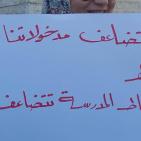 تتضاعف مدخولاتنا
ساط المدرسة تتضاعف